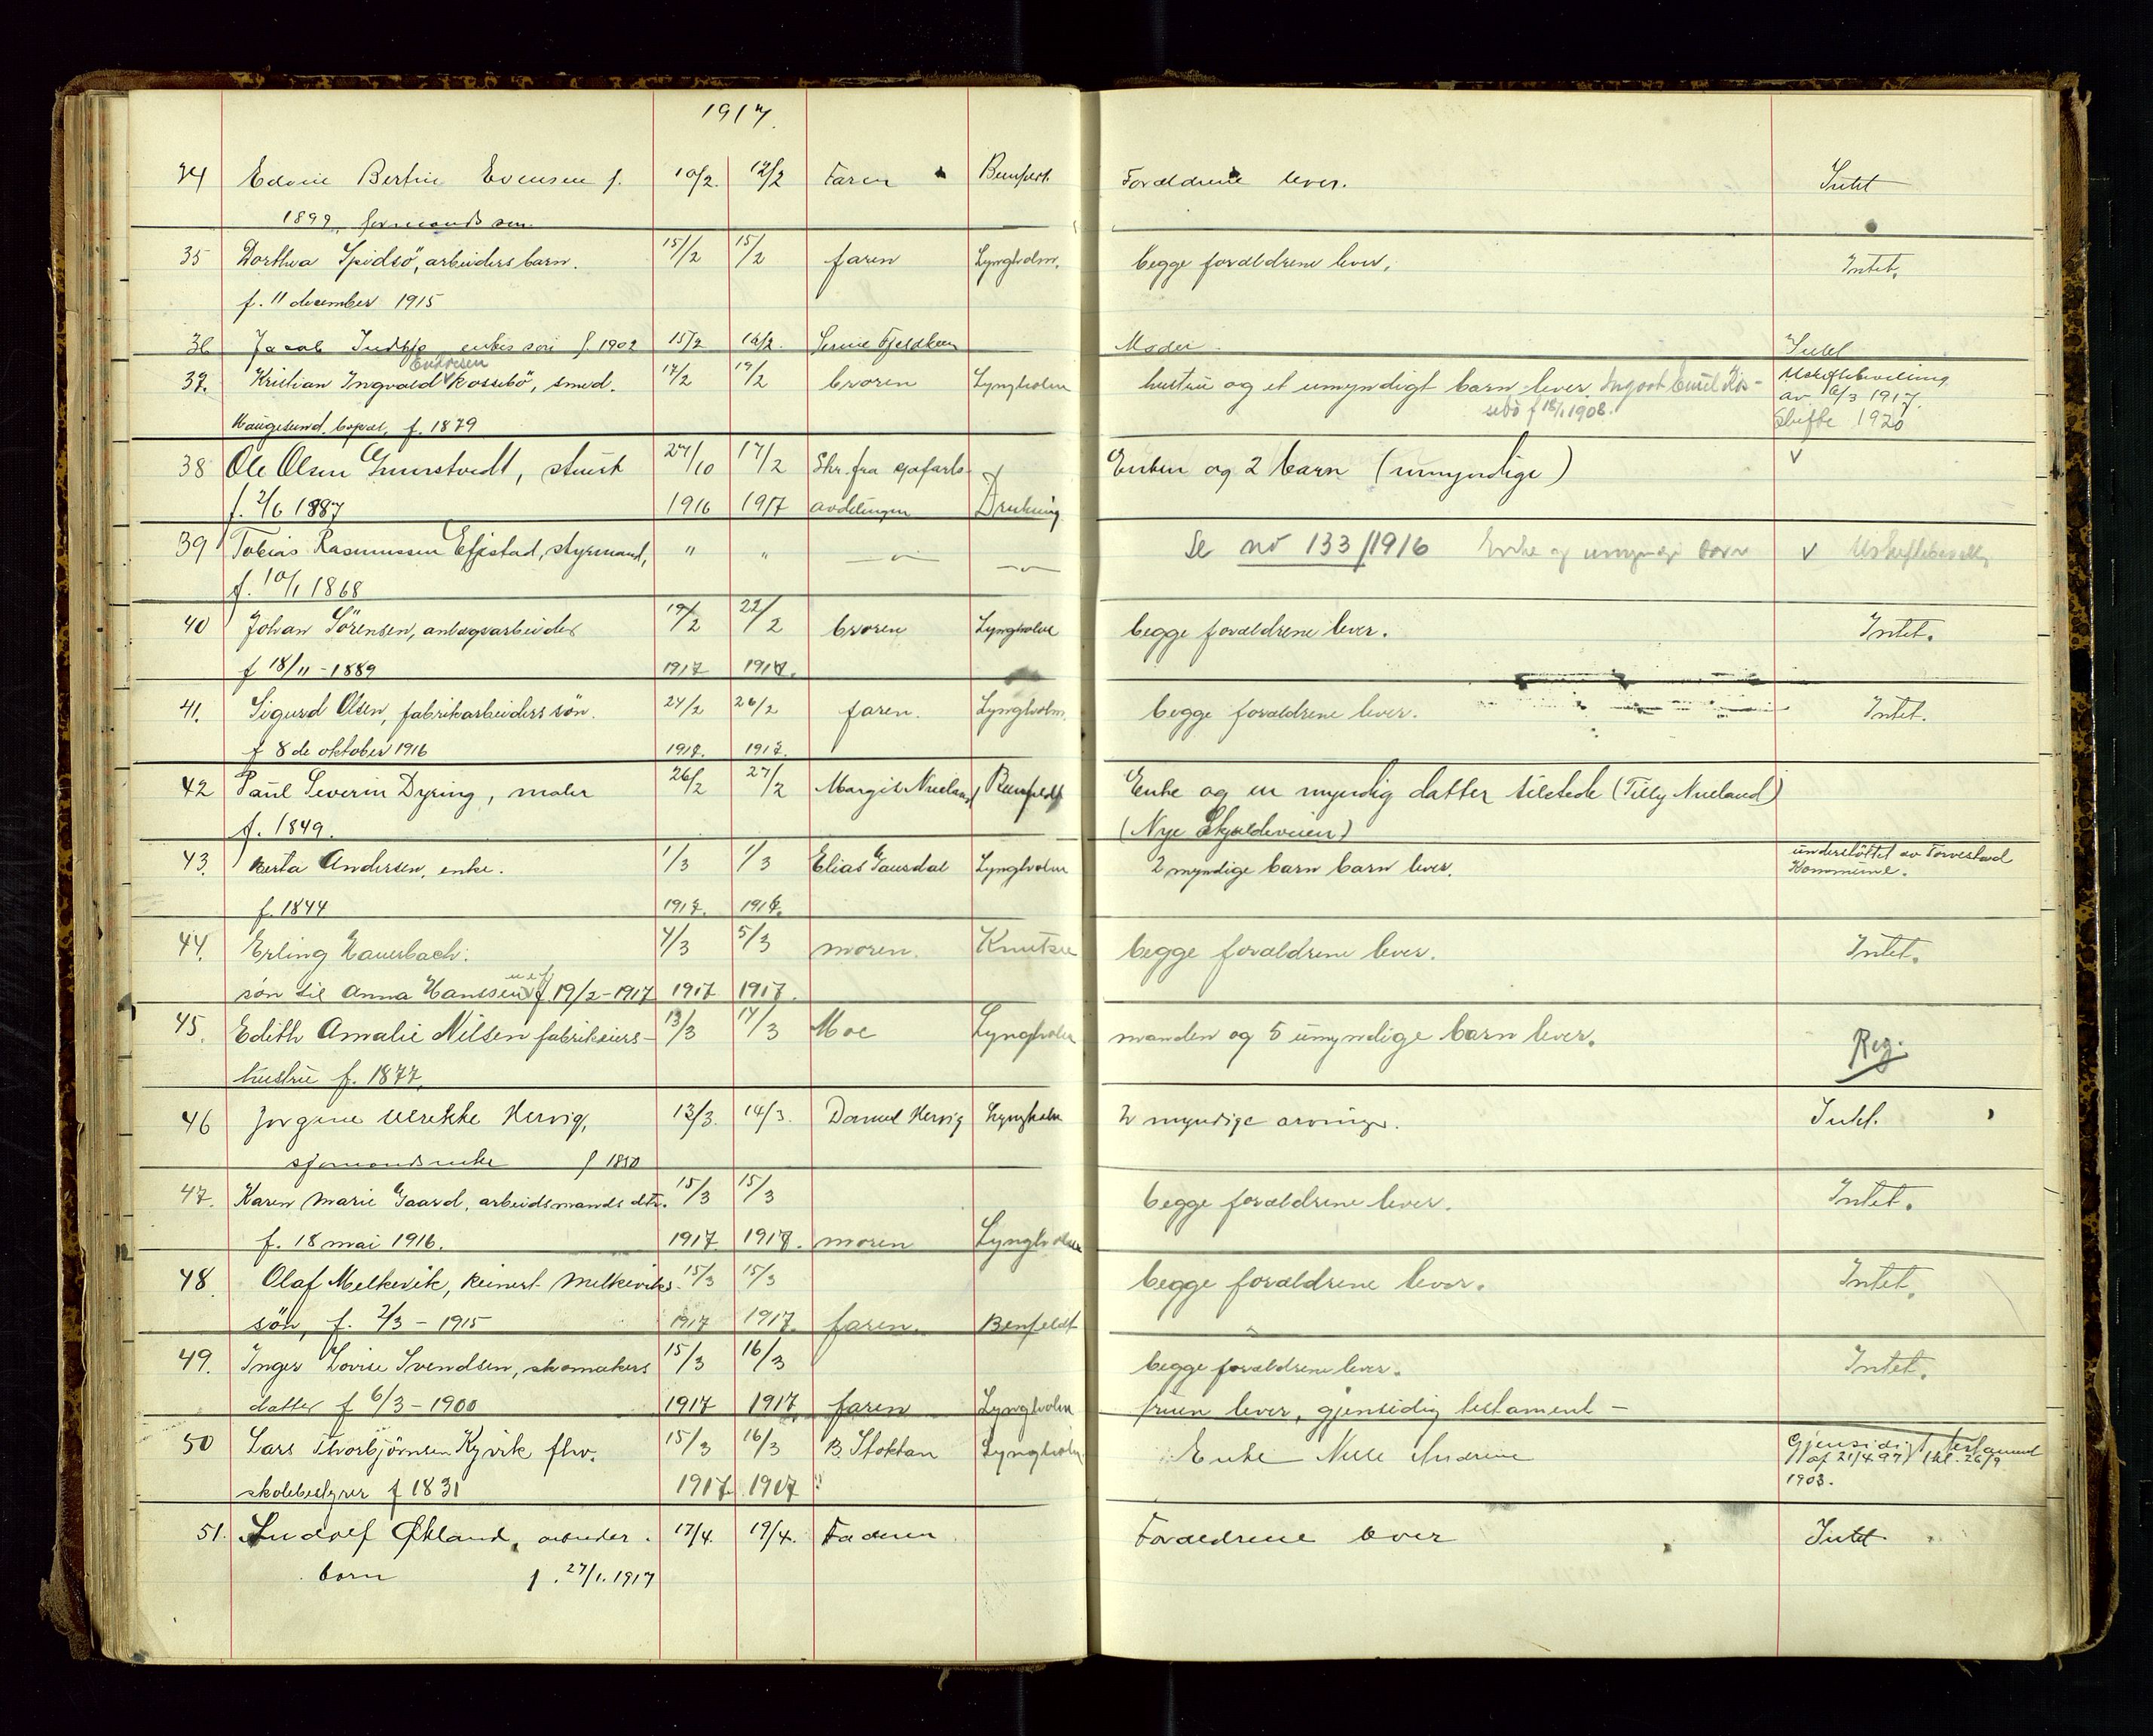 1917.
34 Edvin Bertin Evensen f. 10/2. 12/2 Faren Forældrene lever. Intet
1899, formands søn
35 Dorthea Spidsö, arbeiders barn. 15/2 15/2 faren Lyngholm. begge forældrene lever. Intet.
f. 11 december 1915
36 Jacob enkes søn f. 1902 15/2 16/2. Moder Intet
Endresen
37. Kristian Ingvald Kossebö, smed. 17/2 19/2 broren Lyngholm hustru og et umyndigt barn lever. Ingvart Emil Kos- Uskiftebevilling
sebö f 18/1 1908. av 6/3 1917.
Haugesund. bopæl, f. 1879 Skifte 1920
38 Ole Olsen Gunerstvedt, stuert 27/10 17/2 Skr. fra sjøfarts- Enken og 2 barn (umyndige) v
f. 2/6 1887 1916 1917 avdelingen Drukning
39 Tobias Rasmussen Efjestad, styrmand, " " — " — Se no 133/1916 Enke og umyndige barn v Uskiftebevillg
f. 10/1 1868 — " —
40 Johan Sörensen, anlægsarbeider 19/2 22/2 broren Lyngholm begge forældrene lever. Intet.
f 18/11 - 1889 1917 1917.
41. Sigurd Olsen, fabrikarbeiders søn. 24/2 26/2 faren. Lyngholm. begge forældrene lever. Intet.
f 8de oktober 1916 1917. 1917.
42 Paul Severin Dyring, maler 26/2 27/2 Margit Nueland Enke og en myndig datter tilstede (Tilly Nueland)
f. 1849. (Nye Skjoldeveien)
43. Berta Andersen, enke. 1/3 1/3 Elias Gausdal Lyngholm 2 myndige barn barn lever. understöttet av Torvestad
Kommune.
f. 1844 1917. 1917.
44. Erling Hauerbach. 4/3 5/3 moren. Knutsen begge forældrene lever. Intet.
søn til Anna Hanssen f. 19/2-1917 1917 1917.
45. Edith Amalie Nilsen fabrikeiers- 13/3 14/3 Moe Lyngholm manden og 5 umyndige barn lever. Reg.
hustru f. 1877.
46 Jorgine Ulrikke Hervig, 13/3. 14/3. Daniel Hervig Lyngholm 2 myndige arvinger. Intet.
sjømands enke f 1850
47. Karen Marie Gaard, arbeidsmands dtr. 15/3 15/3 begge forældrene lever. Intet.
f. 18 mai 1916. 1917 1917. moren Lyngholm
48. Olaf Melkevik, Reinert Melkeviks 15/3 15/3 begge forældrene lever. Intet.
sön, f. 2/3 - 1915 1917 1917. faren. Benfeldt
49. Inger Lovise Svendsen, skomakers 15/3 16/3 begge forældrene lever. Intet.
datter f 6/3 - 1900 1917 1917 faren Lyngholm fruen lever, gjensidig testament -
50 Lars Thorbjörnsen Kyvik fhv. 15/3 16/3 B. Stoktan Lyngholm. Enke Nille Andrine Gjensidigt testament
af 21/4 97, thl. 26/9
skolebestyrer f 1831 1917 1917 1903.
51. Ludolf Økland, arbeider. 17/4. 19/4. Faderen Forældrene lever Intet.
barn f. 27/1. 1917